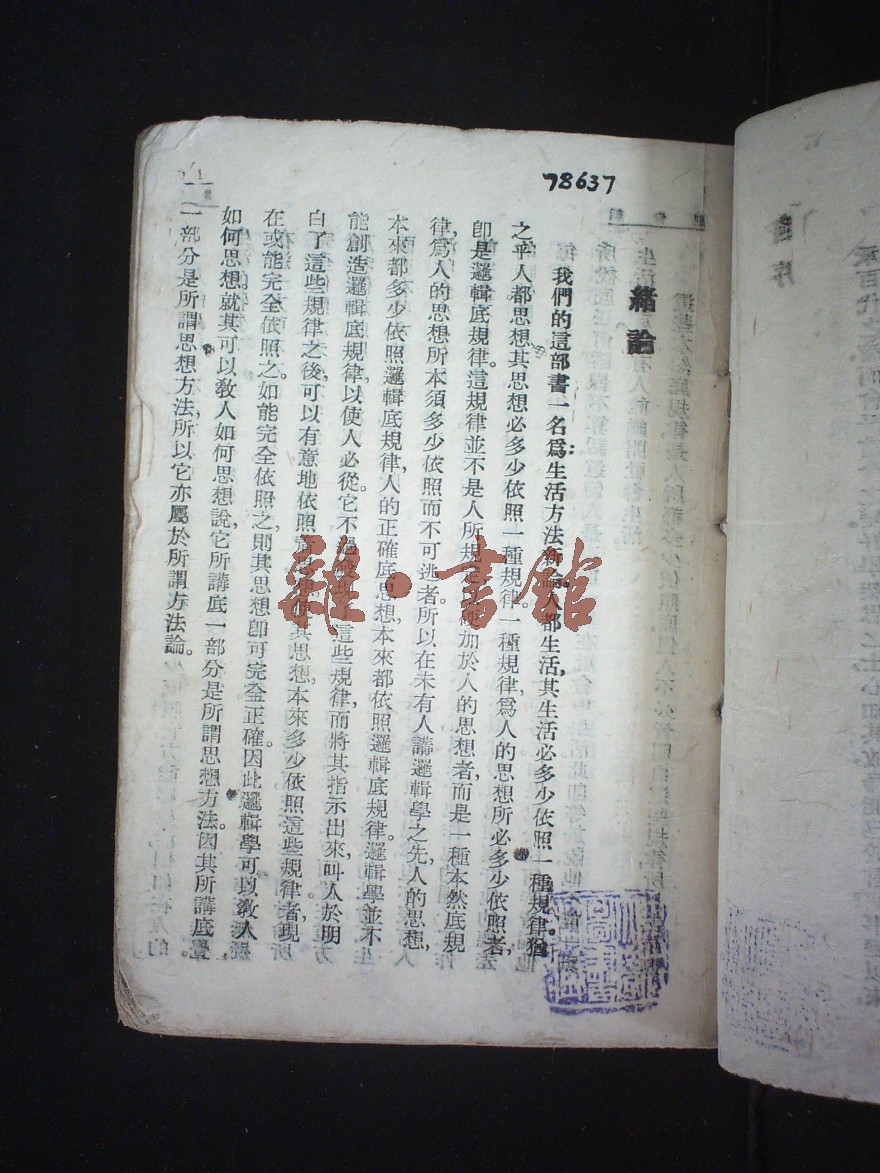 78637
緒論
我們的這部書一名爲:生活方法新論。人都生活,其生活必多少依照一種規律。猶
之乎人都思想,其思想必多少依照一種規律。一種規律,爲人的思想所必多少依照者,
卽是邏輯底規律。這規律並不是人所規定,硬加於人的思想者,而是一種本然底規
律,爲人的思想所本須多少依照而不可逃者。所以在未有人講邏輯學之先,人的思想,
本來都多少依照邏輯底規律。人的正確底思想,本來都依照邏輯底規律。邏輯學並不
能創造邏輯底規律,以使人必從。它不過發現了這些規律,而將其指示出來,叫人於明
白了這些規律之後,可以有意地依照着思想,使其思想,本來多少依照這些規律者,現
在或能完全依照之。如能完全依照之,則其思想卽可完全正確。因此邏輯學可以敎人
如何思想。就其可以敎人如何思想說,它所講底一部分是所謂思想方法。因其所講底
一部分是所謂思想方法,所以它亦屬於所謂方法論。
雜·書館
序